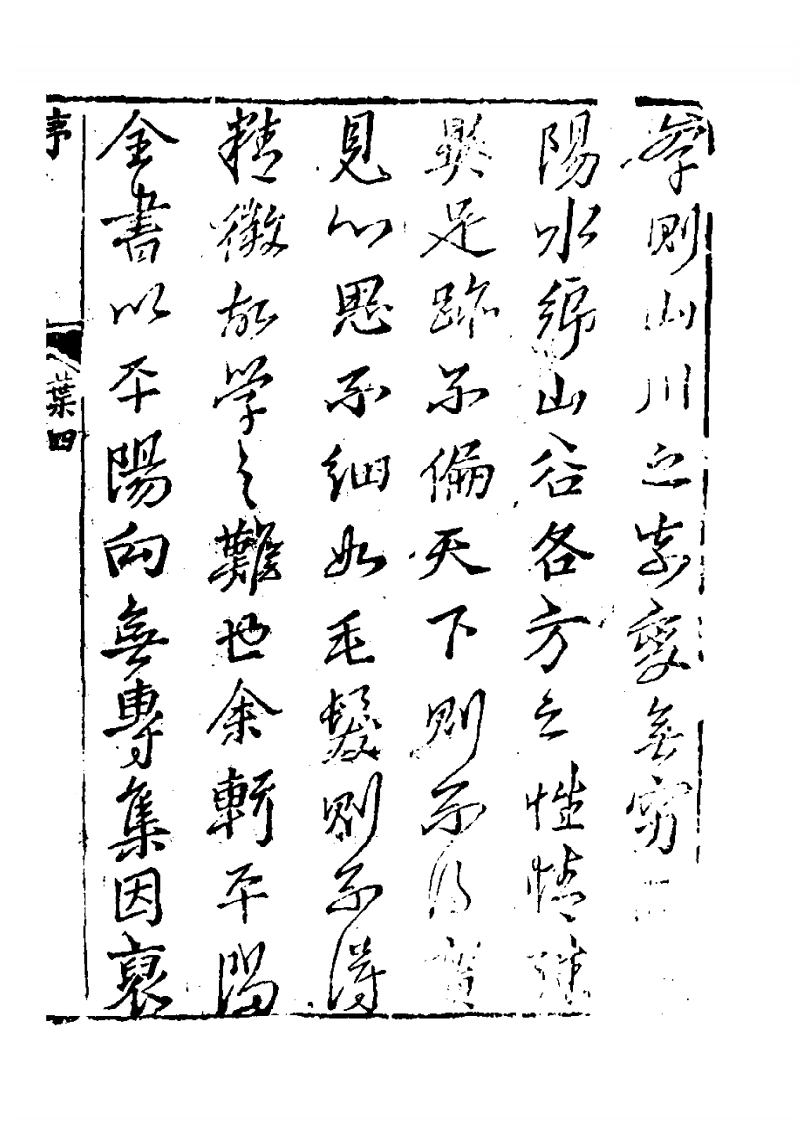 峯則山川之奇變無窮二
陽水鄉山谷各方之性情殊
異足跡不徧天下則不得
見心思不細如毛髮則不得
精微故學之難也余斬平陽
全書以平陽向無專集因裒
序
葉四